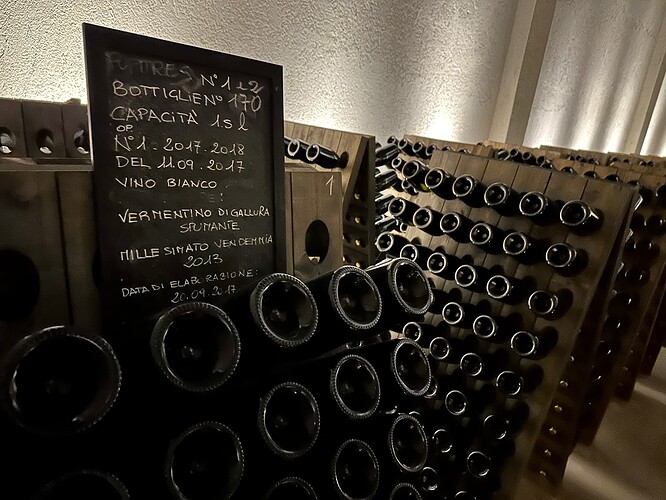 PUPITRES N° 1 e 2
BOTTIGLIE N° 170
CAPACITÀ 1.5 l
OP
N°1 - 2017 - 2018
DEL 11.09.2017
VINO BIANCO
VERMENTINO DI GALLURA
SPUMANTE
MILLESIMATO VENDEMMIA
2013
DATA DI ELABORAZIONE:
20.09.2017
1